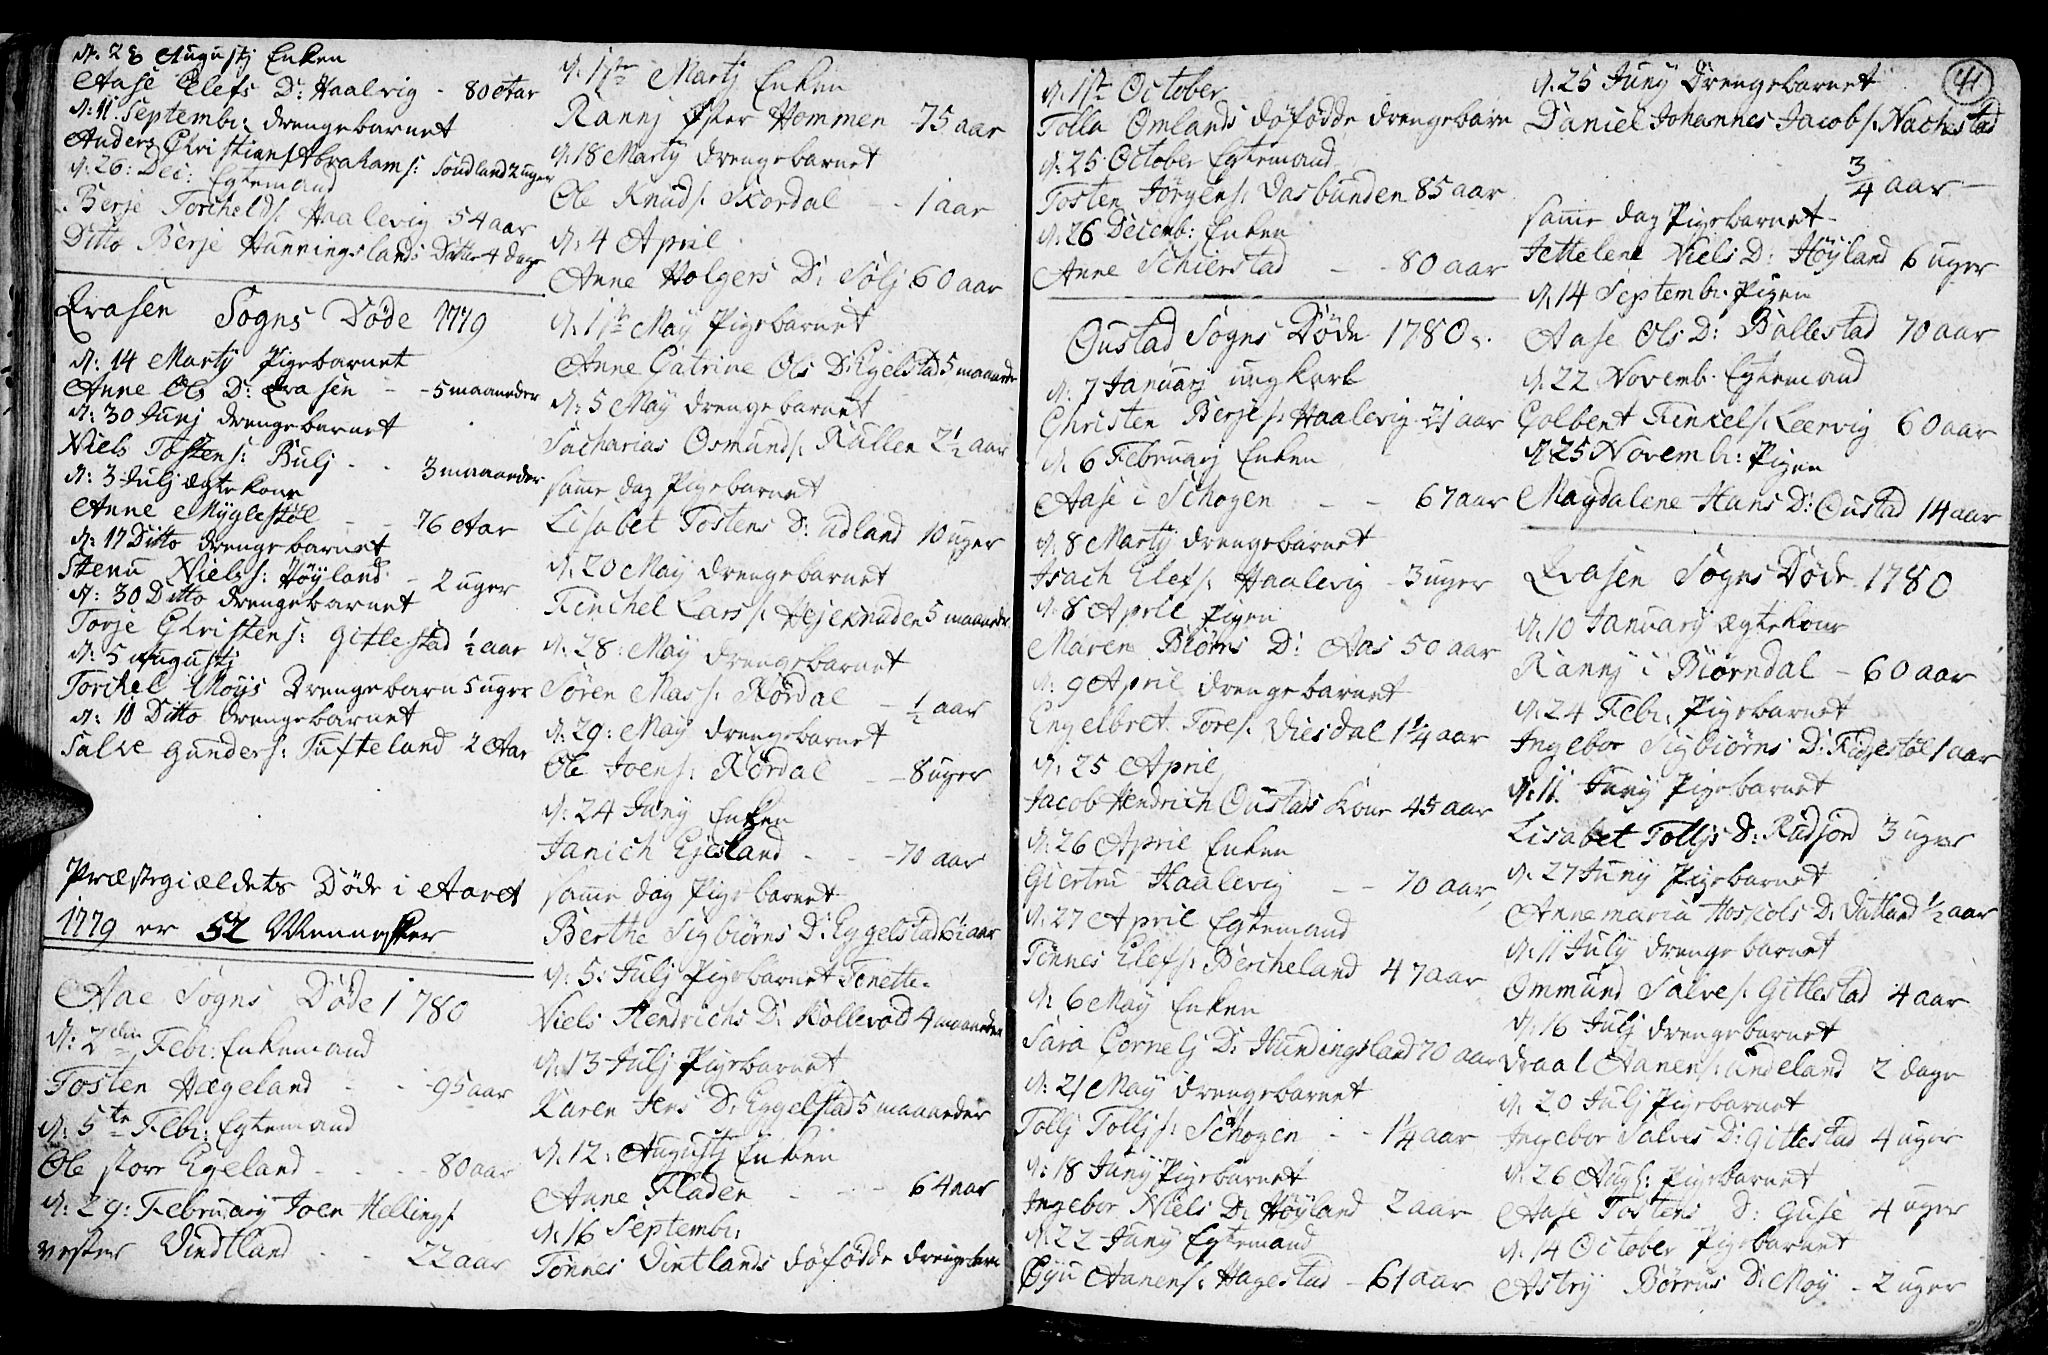 d: 28 Augustj Enken
Aase Elefs D: Haalvig - 80 Aar
d: 11 Septembr: drengebarnet
Anders Christian Abrahams: Sondland 2 uger
d: 26: Dec: Egtemand
Berje Torchelds: Haalevig 54 aar
Ditto Berje Hunningslands Datter 4 dage
Evasen Sogns Døde 1779
d: 14 Martij Pigebarnet
Anne Ols D: Evasen - - 5 maaneder
d: 30 Junj drengebarnet
Niels Tostens: Bulj - - 3 maaneder
d: 3 Julj ægtekone
Anne Myglestøl - - 76 Aar
d: 17 Ditto drengebarnet
Stenu Niels: Høyland - 2 uger
d: 30 Ditto drengebarnet
Torje Christens: Gitlestad ½ aar
d: 5 Augustj
Torchel Moÿs Drengebarn 5 uger
d: 10 Ditto drengebarnet
Salve Gunders: Tufteland 2 Aar
Præstegiældets Døde i Aaret
1779 er 52 Mennesker
Aae Sogns Døde 1780
d: 2den Febr: Enkemand
Tosten Hægeland - - 95 aar
d: 5te Febr: Egtemand
Ole store Egeland - - - 80 aar
d: 29: Februarij Joen Hellings:
vester Vindtland - - 22 aar
d. 1ste Martj Enken
Rannj Øster Hommen - 75 aar
d. 18 Martij drengebarnet
Ole Knuds: Skordal - - 1 aar
d. 4 April
Anne Holgers D: Sølj 60 aar
d. 1ste Maÿ Pigebarnet
Anne Catrine Ols D: Egelstad 5 maaneder
d: 5 Maÿ drengebarnet
Sacharias Osmunds: Kallen 2½ aar
samme dag Pigebarnet
Lisabet Tostens D: udland 10 uger
d. 20 Maÿ drengebarnet
Finchel Lars: Hejeknuden 5 maaneder
d. 28: Maÿ drengebarnet
Søren Mas: Rordal - ½ aar
d: 29: Maÿ drengebarnet
Ole Joens: Rordal - - 8 uger
d: 24 Junÿ Enken
Janich Ejesland - - - 70 aar
samme dag Pigebarnet
Berthe Sigbiørns D: Eggelstad 6½ aar
d: 5: Julj Pigebarnet Tonette
Niels Hendrichs D: Kollevod 4 maaneder
d. 13 Julj Pigebarnet
Karen Jens D: Eggelstad 5 maaneder
d. 12: Augustj Enken
Anne Fladen - - - 64 aar
d: 16 Septembr:
Tønnes Vintlands døfødde drengebarn
41
d. 1ste October
Tolla Omlands døfødde drengebarn
d: 25 October Egtemand
Tosten Jørgens: Dasbunden 85 aar
d: 26 Decemb: Enken
Anne Schierstad - - 80 aar
Oustad Sogns Døde 1780.
d: 7 Januarj ungkarl
Christen Berjes: Haalevig 21 aar
d. 6 Februarj Enken
Aase i Schogen - - 67 aar
d. 8 Martij drengebarnet
Isach Elefs: Haalevig - 3 uger
d. 8 April Pigen
Maren Biørns D: Aas 50 aar
d: 9 April drengebarnet
Engelbret Tores: Viesdal 1¼ aar
d: 25 April
Jacob Hendrich Oustads Kone 45 aar
d. 26 April Enken
Giertru Haalevig - - 70 aar
d. 27 April Egtemand
Tønnes Elefs: Bercheland 47 aar
d. 6 Maÿ Enken
Sara Cornelj D: Hundingsland 70 aar
d: 21 Maÿ drengebarnet
Tollj Tolljs: Schogen - - 1¼ aar
d: 18 Junÿ Pigebarnet
Ingebor Niels D: Høyland 2 aar
d. 22 Junÿ Egtemand
Gyu Aanens: Hagestad - 61 aar
d. 25 Junÿ Drengebarnet
Daniel Johannes Jacobs: Nachestad
¾ aar -
samme dag Pigebarnet
Jettelene Niels D: Høÿland 6 uger
d. 14 Septembr: Pigen
Aase Ols D: Ballestad 70 aar
d. 22 Novemb: Egtemand
Colbent Finkels: Leervig 60 aar
d. 25 Novembr: Pigen
Magdalene Hans D: Oustad 14 aar
Evasen Sogns Døde 1780
d. 10 Januarij ægtekone
Rannj i Biørndal - 60 aar
d. 24 Febr: Pigebarnet
Ingebor Sigbiørns D: Figestøl 1 aar
d. 11 Junÿ Pigebarnet
Lisabet Tolljs D: Rudjord 3 uger
d. 27 Junÿ Pigebarnet
Annemaria Hoskols D: Datland ½ aar
d. 11 Julÿ drengebarnet
Ommund Salves: Gitlestad 4 aar
d. 16 Julj drengebarnet
Draal Aanens: undeland 2 dage
d. 20 Julj Pigebarnet
Ingebor Salves D: Gitlestad 4 uger
d. 26 Augs: Pigebarnet
Aase Tostens D: Guse 4 uger
d. 14 October Pigebarnet
Astrÿ Børrus D: Moÿ - 2 uger